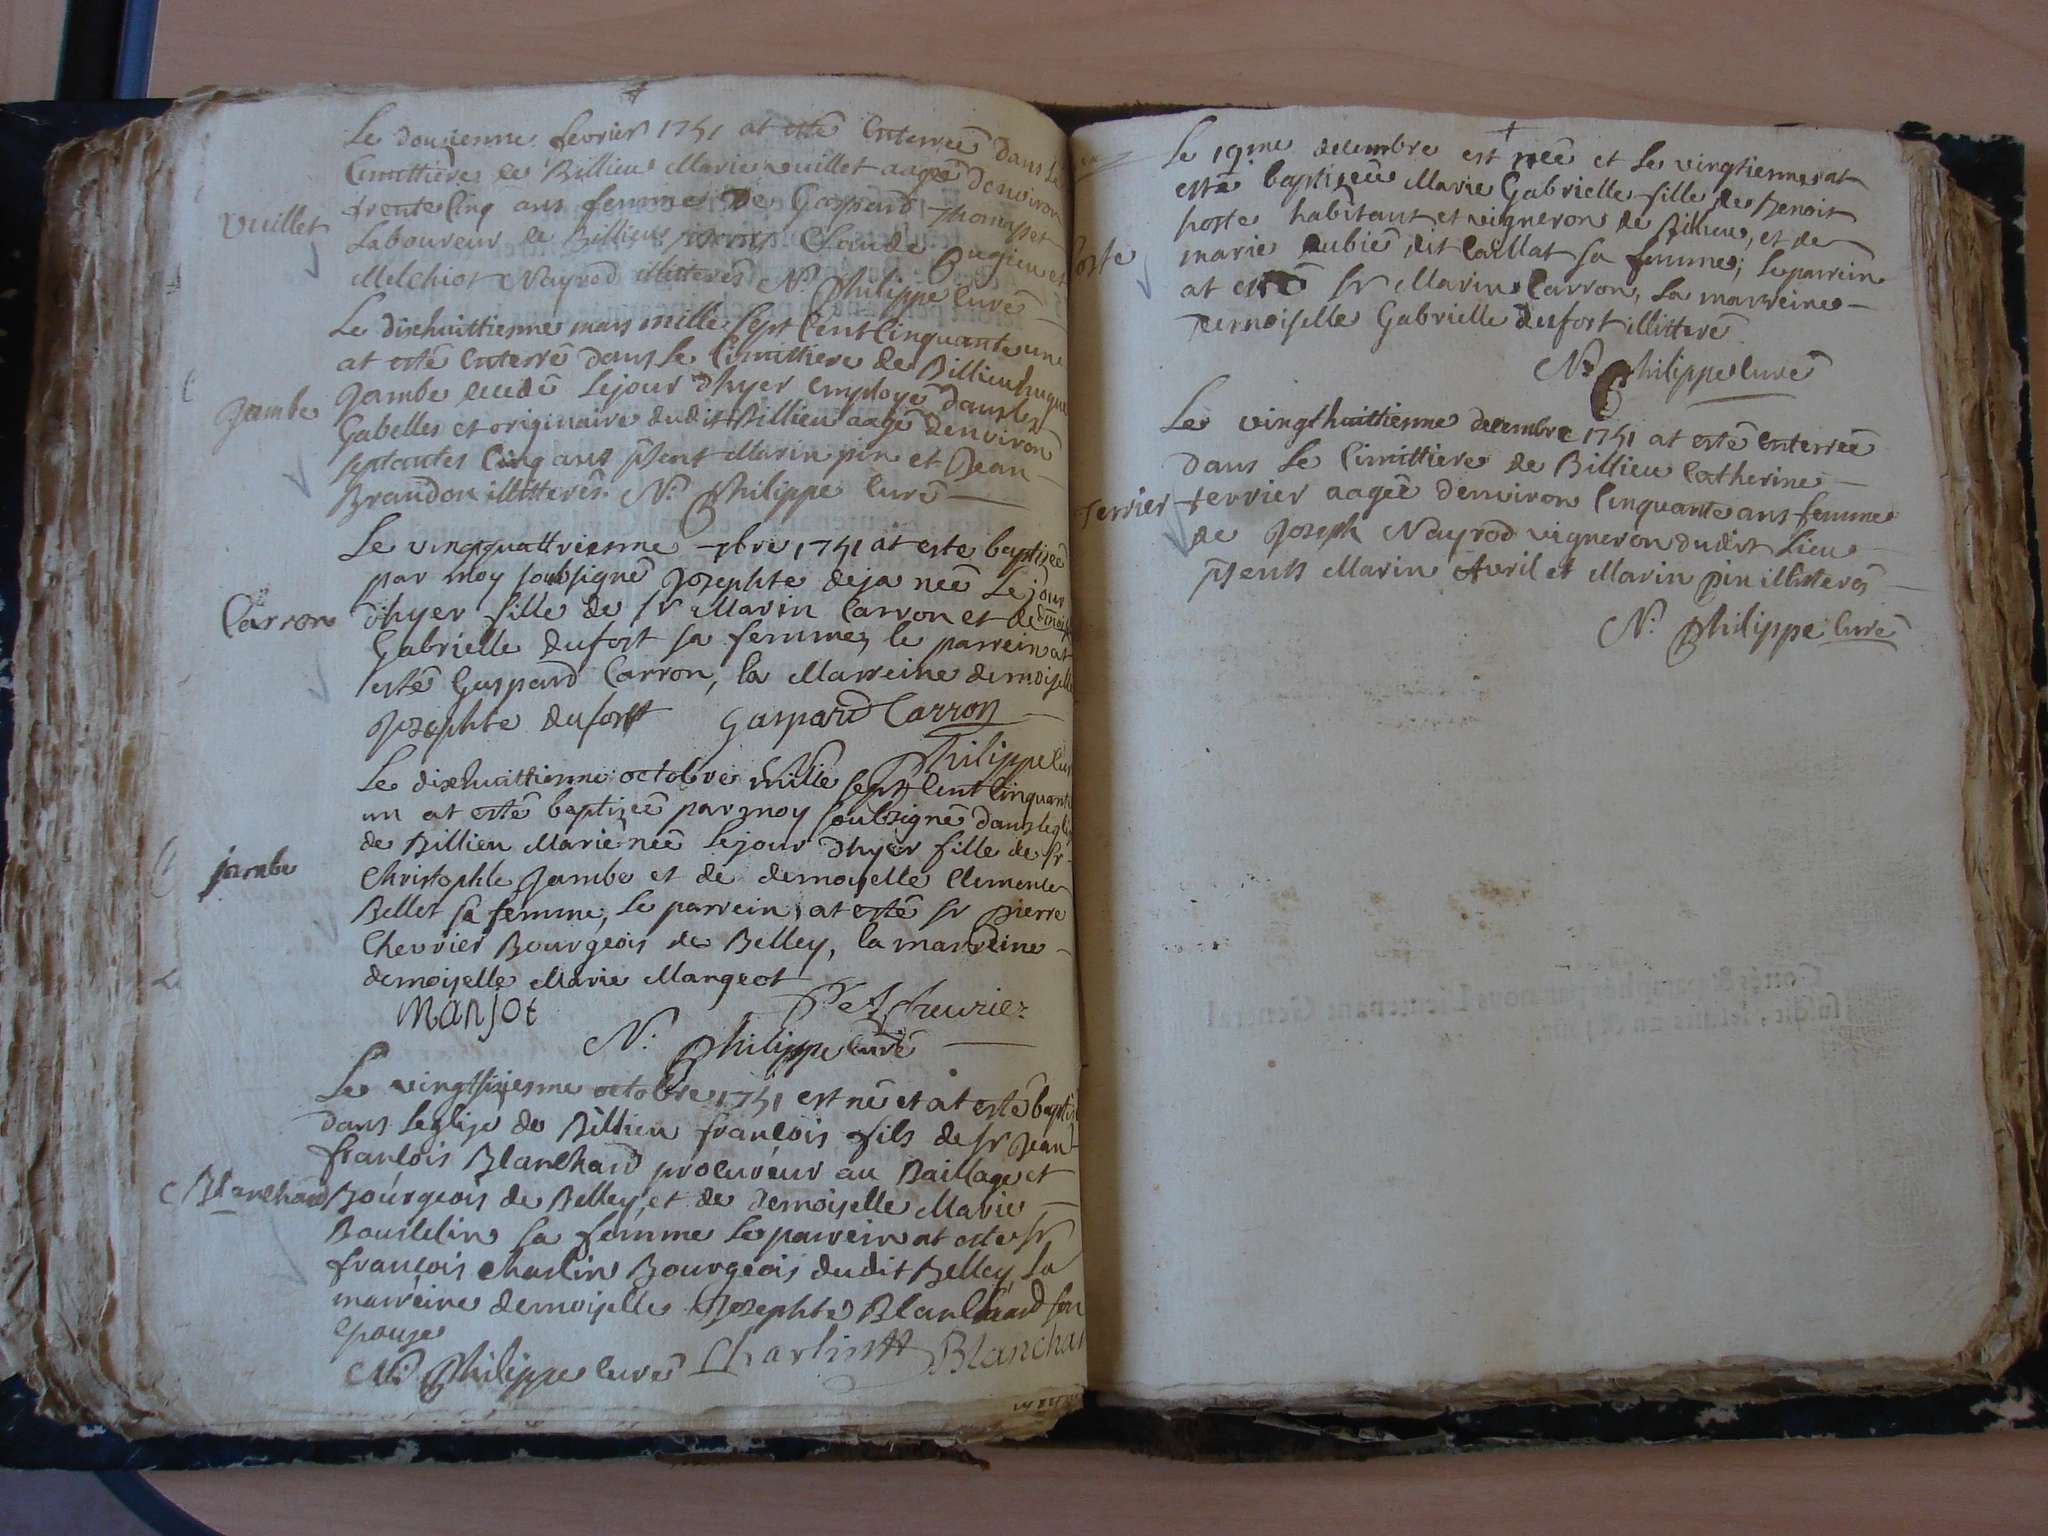 Le douzienne fevrier 1751 at esté enterreé dans le
Cimittiere de Billieu Marie vuillet aageé denviron
trente cinq ans femme de Gaspard Thomasset
Vuillet
Laboureur de Billieu Claude Bugieu et
Melchiot Nayrod illitterés N. Philippe Curé
Le dixhuittienne mars mille sept cent cinquante une
at esté enterré dans le Cimittiere de Billieu hugue
Jambe
Jambe decedé le jour dhyer employé dans les
Gabelles et originaire dudit Billieu aagé denviron
septantes cinq ans psents Marin pin et Jean
Brandon illitterés. N. Philippe Curé
Le vingquattriesme 7bre 1751 at esté baptiseé
par moy soubsigné Josephte deja neé le jour
Carron
dhyer fille de sr Marin Carron et de
Gabrielle dufort sa femme, le parrein at
esté Gaspard Carron, la Marreine demoiselle
Josephte dufort Gaspard Carron
Philippe Cu
Le dixhuittienne octobre mille sept cent cinquante
un at esté baptizeé par moy soubsigné dans leglise
de Billieu Marie neé le jour dhyer fille de sr
jambe
Christophle Jambe et de demoiselle Clemente
Bellet sa femme, le parrein at esté sr pierre
Chevrier Bourgeois de Belley, la marreine
demoiselle Marie Margeot
Manjot
cheurier
N. Philippe curé
Le vingtsixiesme octobre 1751 est né et at esté baptisé
dans leglise de Billieu francois fils de sr Jean
francois Blanchard procureur au Baillage et
Blanchard
Bourgeois de Belley, et de demoiselle Marie
sa femme le parrein at esté sr
francois Charlin Bourgeois dudit Belley, la
marreine demoiselle Josephte Blanchard son
epouse
N. Philippe Curé Charlin Blanchar
Le 19me decembre est neé et le vingtienne at
esté baptizeé Marie Gabrielle fille de Benoit
poste habitant et vigneron de Billieu, et de
marie dubié dit Caillat sa femme, le parrein
at esté sr Marin Carron, la marreine
demoiselle Gabrielle dufort illitteré
N. Philippe Curé
Le vingthuittienne decembre 1751 at esté enterreé
dans le Cimittiere de Billieu Catherine
Terrier
terrier aageé denviron cinquante ans femme
de Joseph Nayrod vigneron dudit lieu
psents Marin Avril et Marin pin illitterés
N. Philippe Curé